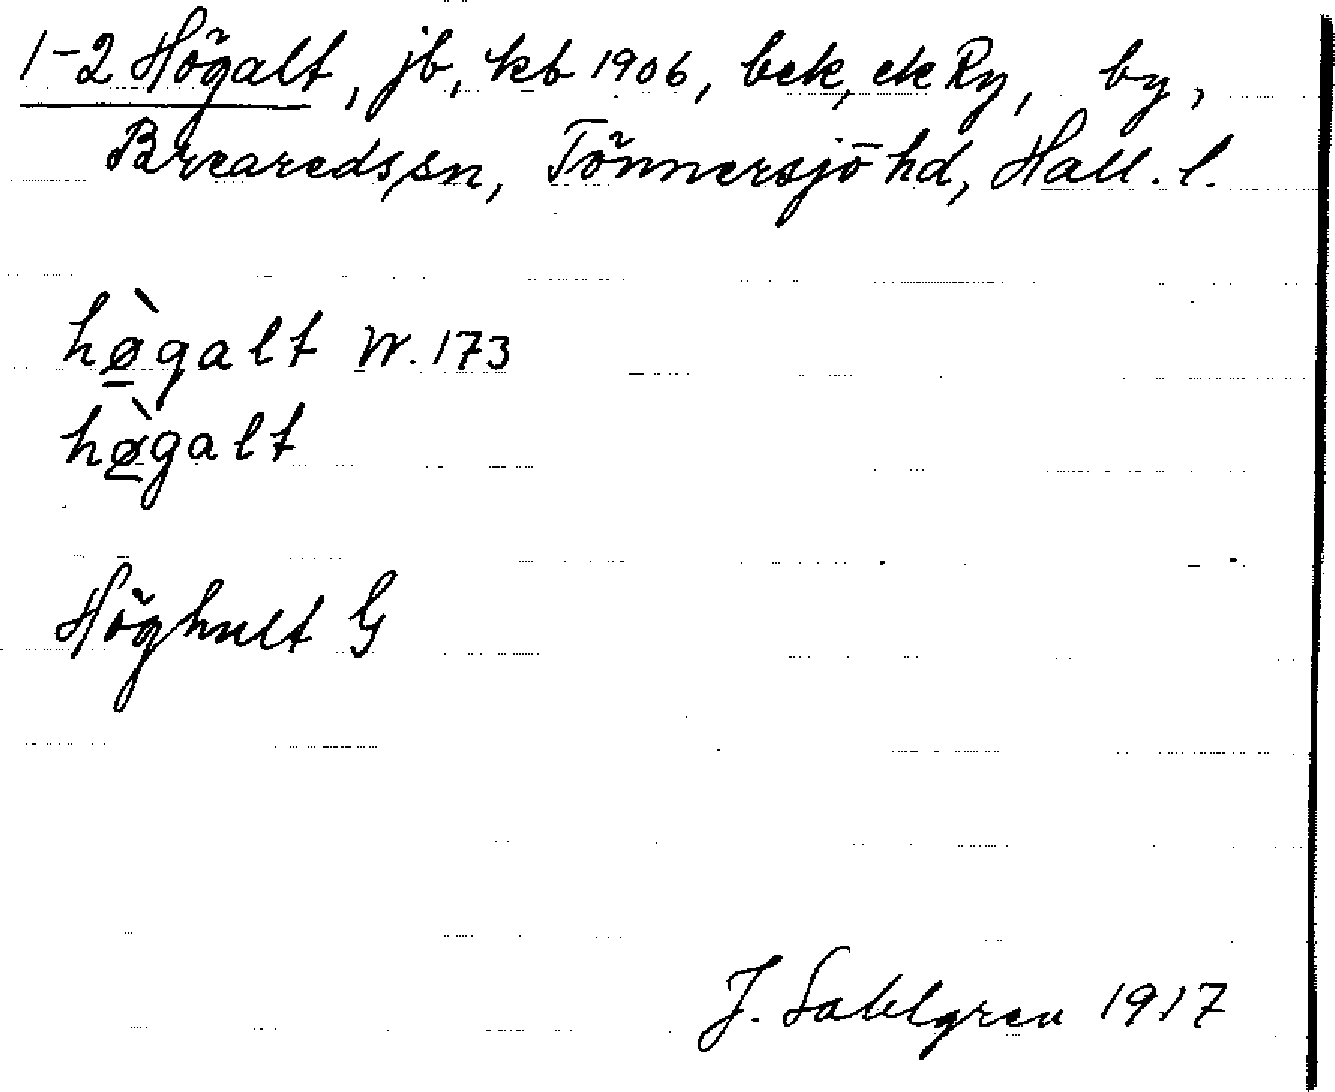 1-2 Högalt, jb, kb 1906, bek, ek Ry, by,
Breareds sn, Tönnersjö hd, Hall. l.
hø̲̀galt W. 173
hø̲̀galt
Höghult G
J. Sahlgren 1917